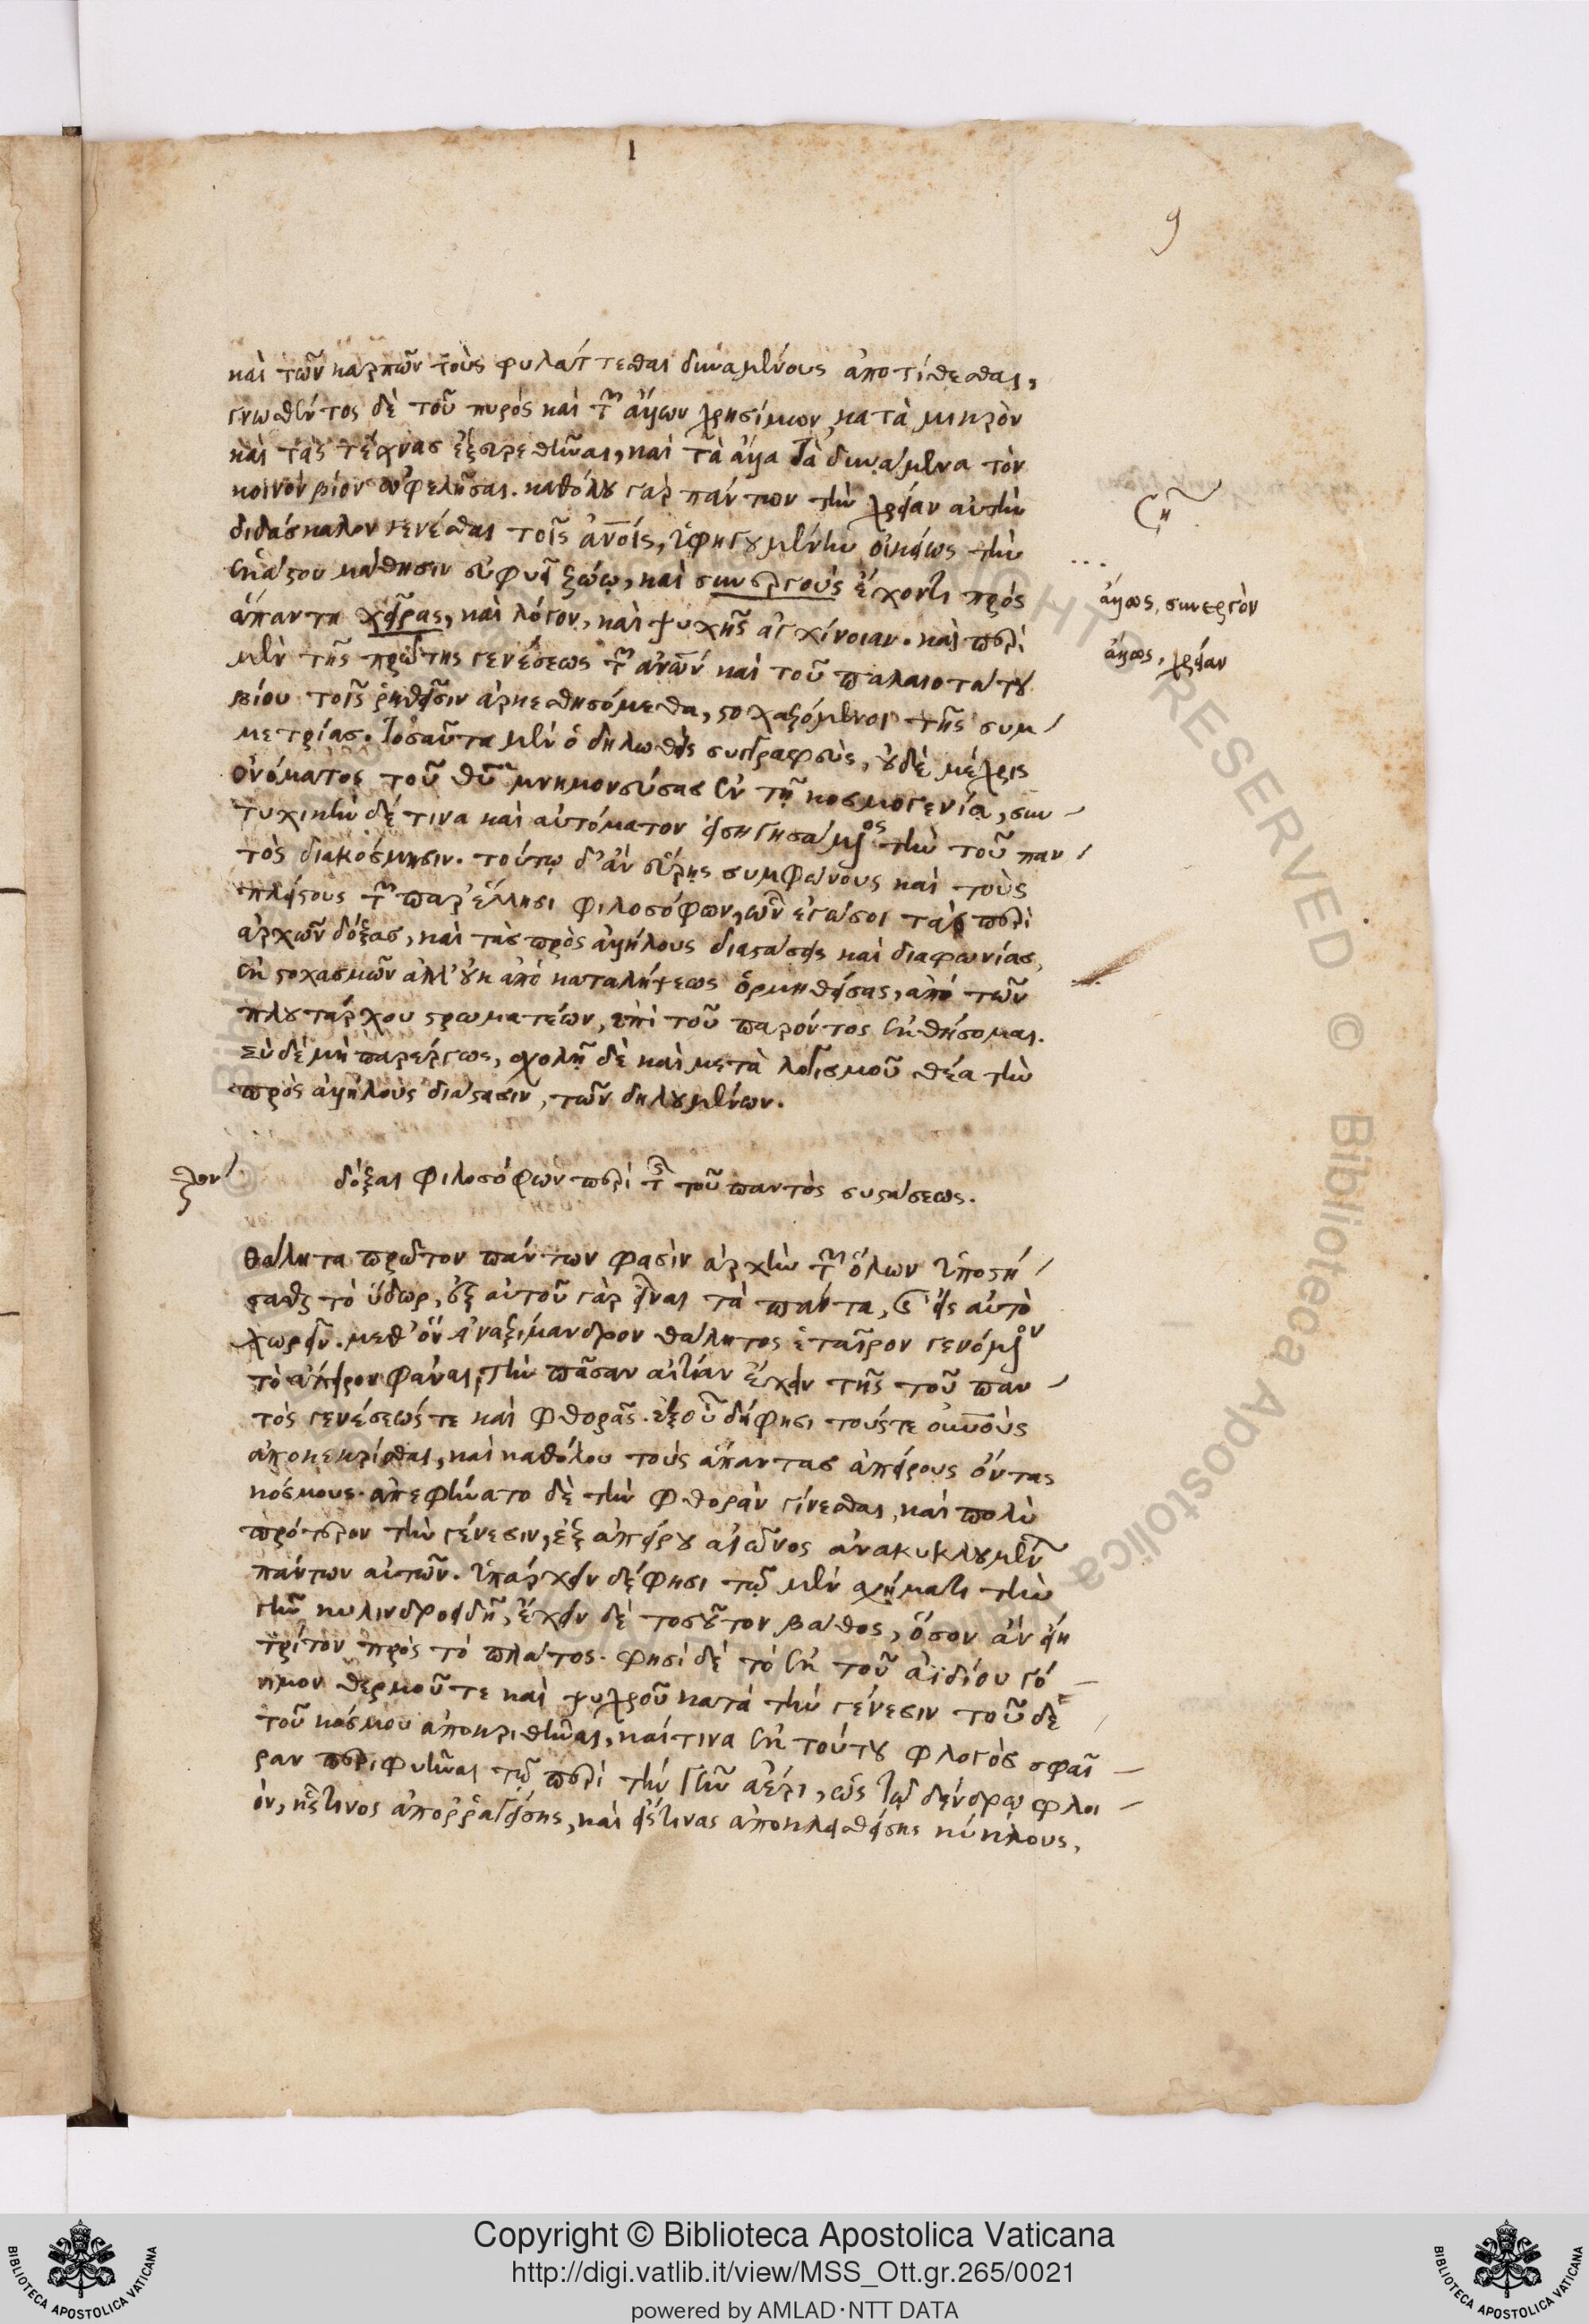 1
9
καὶ τῶν καρπῶν τοὺς φυλάττεσθαι δυναμένους ἀποτίθεσθαι,
γνωσθέντος δὲ τοῦ πυρὸς καὶ τῶν ἄλλων χρησίμων, κατὰ μικρὸν
καὶ τὰς τέχνας εὑρεθῆναι, καὶ τὰ ἄλλα τὰ δυνάμενα τὸν
κοινὸν βίον ὠφελῆσαι. καθόλου γὰρ πάντων τὴν χρείαν αὐτὴν
διδάσκαλον γενέσθαι τοῖς ἀνοις, ὑφηγουμένην οἰκείως τὴν
ἑκάστου μάθησιν εὐφυεῖ ζώῳ, καὶ συνεργοὺς ἔχοντι πρὸς
ἅπαντα χεῖρας, καὶ λόγον, καὶ ψυχῆς ἀγχίνοιαν. καὶ περὶ
μὲν τῆς πρώτης γενέσεως τῶν ἀνων καὶ τοῦ παλαιοτάτου
βίου τοῖς ῥηθεῖσιν ἀρκεσθησόμεθα, στοχαζόμενοι τῆς συμ
μετρίας. Τοσαῦτα μὲν ὁ δηλωθεὶς συγγραφεὺς, οὐδὲ μέχρις
ὀνόματος τοῦ θυ μνημονεύσας ἐν τῇ κοσμογενίᾳ, συν
τυχικὴν δέ τινα καὶ αὐτόματον εἰσηγησάμενος τὴν τοῦ παν
τὸς διακόσμησιν. τούτῳ δ' ἂν εὕρῃς συμφώνους καὶ τοὺς
πλείστους τῶν παρ' ἕλλησι φιλοσόφων, ὧν ἐγώ σοι τὰς περὶ
ἀρχῶν δόξας, καὶ τὰς πρὸς ἀλλήλους διαστάσεις καὶ διαφωνίας,
ἐκ στοχασμῶν ἀλλ' οὐκ ἀπὸ καταλήψεως ὁρμηθείσας, ἀπὸ τῶν
πλουτάρχου στρωματέων, ἐπὶ τοῦ παρόντος ἐκθήσομαι.
σὺ δὲ μὴ παρέργως, σχολῇ δὲ καὶ μετὰ λογισμοῦ θέα τὴν
πρὸς ἀλλήλους διάστασιν, τῶν δηλουμένων.
δόξαι φιλοσόφων περὶ τῆς τοῦ παντὸς συστάσεως.
θάλητα πρῶτον πάντων φασὶν ἀρχὴν τῶν ὅλων ὑποστή
σασθαι τὸ ὕδωρ, ἐξ αὐτοῦ γὰρ εἶναι τὰ πάντα, καὶ εἰς αὐτὸ
χωρεῖν. μεθ' ὃν ἀναξίμανδρον θάλητος ἑταῖρον γενόμενον
τὸ ἄπειρον φάναι, τὴν πᾶσαν αἰτίαν ἔχειν τῆς τοῦ παν
τὸς γενέσεώς τε καὶ φθορᾶς. ἐξ οὗ δή φησι τούς τε οὐνοὺς
ἀποκεκρίσθαι, καὶ καθόλου τοὺς ἅπαντας ἀπείρους ὄντας
κόσμους. ἀπεφήνατο δὲ τὴν φθορὰν γίνεσθαι, καὶ πολὺ
πρότερον τὴν γένεσιν, ἐξ ἀπείρου αἰῶνος ἀνακυκλουμένων
πάντων αὐτῶν. ὑπάρχειν δέ φησι τῷ μὲν σχήματι τὴν
γῆν κυλινδροειδῆ, ἔχειν δὲ τοσοῦτον βάθος, ὅσον ἂν εἴη
τρίτον πρὸς τὸ πλάτος. φησὶ δὲ τὸ ἐκ τοῦ ἀϊδίου γό
νιμον θερμοῦ τε καὶ ψυχροῦ κατὰ τὴν γένεσιν τοῦδε
τοῦ κόσμου ἀποκριθῆναι, καί τινα ἐκ τούτου φλογὸς σφαῖ
ραν περιφυῆναι τῷ περὶ τὴν γῆν ἀέρι, ὡς τῷ δένδρῳ φλοι
όν, ἧς τινος ἀπορραγείσης, καὶ εἴς τινας ἀποκλεισθείσης κύκλους,
ἐκ
ἄλλως, συνεργὸν
ἄλλως, χρείαν
Copyright © Biblioteca Apostolica Vaticana
http://digi.vatlib.it/view/MSS_Ott.gr.265/0021
powered by AMLAD·NTT DATA
BIBLIOTECA APOSTOLICA VATICANA
BIBLIOTECA APOSTOLICA VATICANA